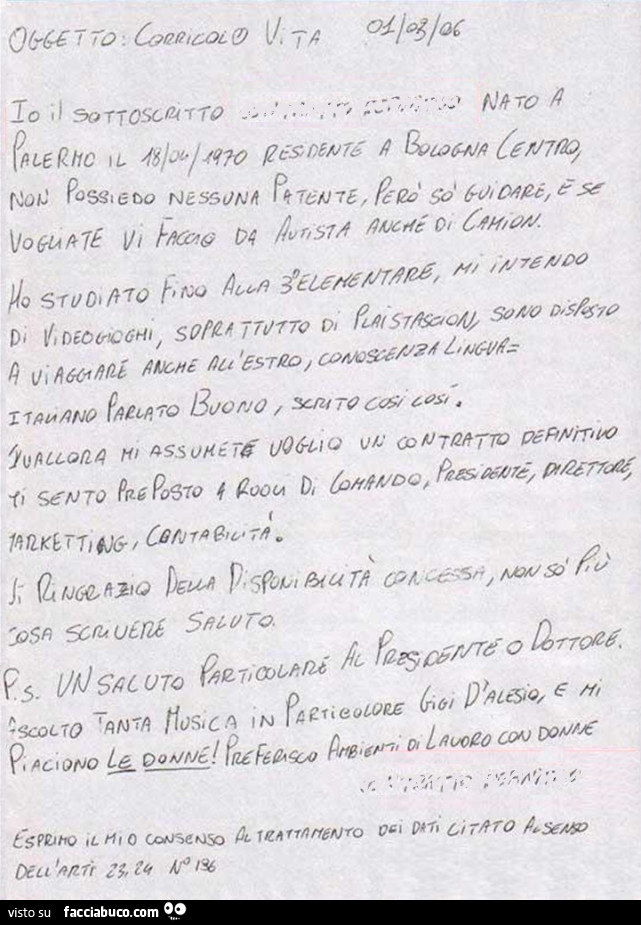 OGGETTO: CORRICOLO VITA 01/03/06
IO IL SOTTOSCRITTO NATO A
PALERMO IL 18/04/1970 RESIDENTE A BOLOGNA CENTRO,
NON POSSIEDO NESSUNA PATENTE, PERÒ SÒ GUIDARE, E SE
VOGLIATE VI FACCIO DA AUTISTA ANCHE DI CAMION.
HO STUDIATO FINO ALLA 3° ELEMENTARE, MI INTENDO
DI VIDEOGIOGHI, SOPRATTUTTO DI PLAISTASCION, SONO DISPOSTO
A VIAGGIARE ANCHE ALL'ESTRO, CONOSCENZA LINGUA=
ITALIANO PARLATO BUONO, SCRITO COSÌ COSÌ.
QUALLORA MI ASSUMETE VOGLIO UN CONTRATTO DEFINITIVO
MI SENTO PREPOSTO A ROOLI DI COMANDO, PRESIDENTE, DIRETTORE,
MARKETTING, CONTABILITÀ.
VI RINGRAZIO DELLA DISPONIBILITÀ CONCESSA, NON SÒ PIÙ
COSA SCRIVERE SALUTO.
P.S. UN SALUTO PARTICOLARE AL PRESIDENTE O DOTTORE.
ASCOLTO TANTA MUSICA IN PARTICOLORE GIGI D'ALESIO, E MI
PIACIONO LE DONNE! PREFERISCO AMBIENTI DI LAVORO CON DONNE
ESPRIMO IL MIO CONSENSO AL TRATTAMENTO DEI DATI CITATO AL SENSO
DELL'ARTI 23,24 N° 196
visto su facciabuco.com